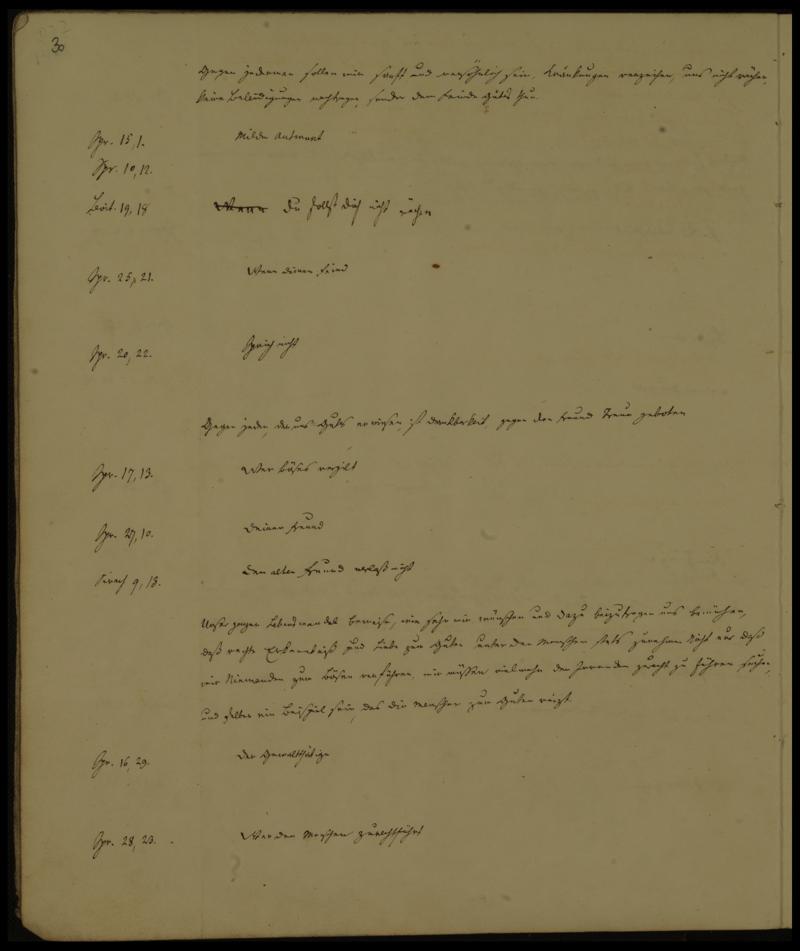 30
Gegen jederman sollen wir sanft und versöhnlich sein, Kränkungen verzeihen, uns nicht rächen,
keine Beleidigungen nachtragen, sonder dem Feinde Gutes thun.
Spr. 15,1. Milde Antwort
Spr. 10,12.
Levit. 19,18 Wenn du sollst dich nicht rächen
Spr. 25,21. Wenn deinen Feind
Spr. 20,22. Sprich nicht
Gegen jeden, der uns Gutes erwiesen, ist Dankbarkeit, gegen den Freund Treue geboten
Spr. 17,13. Wer böses vergilt
Spr. 27,10. Deinen Freund
Sirach 9,13. Den alten Freund verlaß nicht
Unser ganzer Lebenswandel beweise, wie sehr wir wünschen und dazu beizutragen uns bemühen,
daß rechte Erkenntniß und Liebe zum Guten unter den Menschen stets zunehme. Nicht nur daß
wir Niemanden zum Bösen verführen, wir müssen vielmehr den Irrenden zurecht zu führen suchen,
und selber ein Beispiel sein, das die Menschen zum Guten reizt.
Spr. 16,29. Der Gewaltthätige
Spr. 28,23. Wer den Menschen zurechtführt